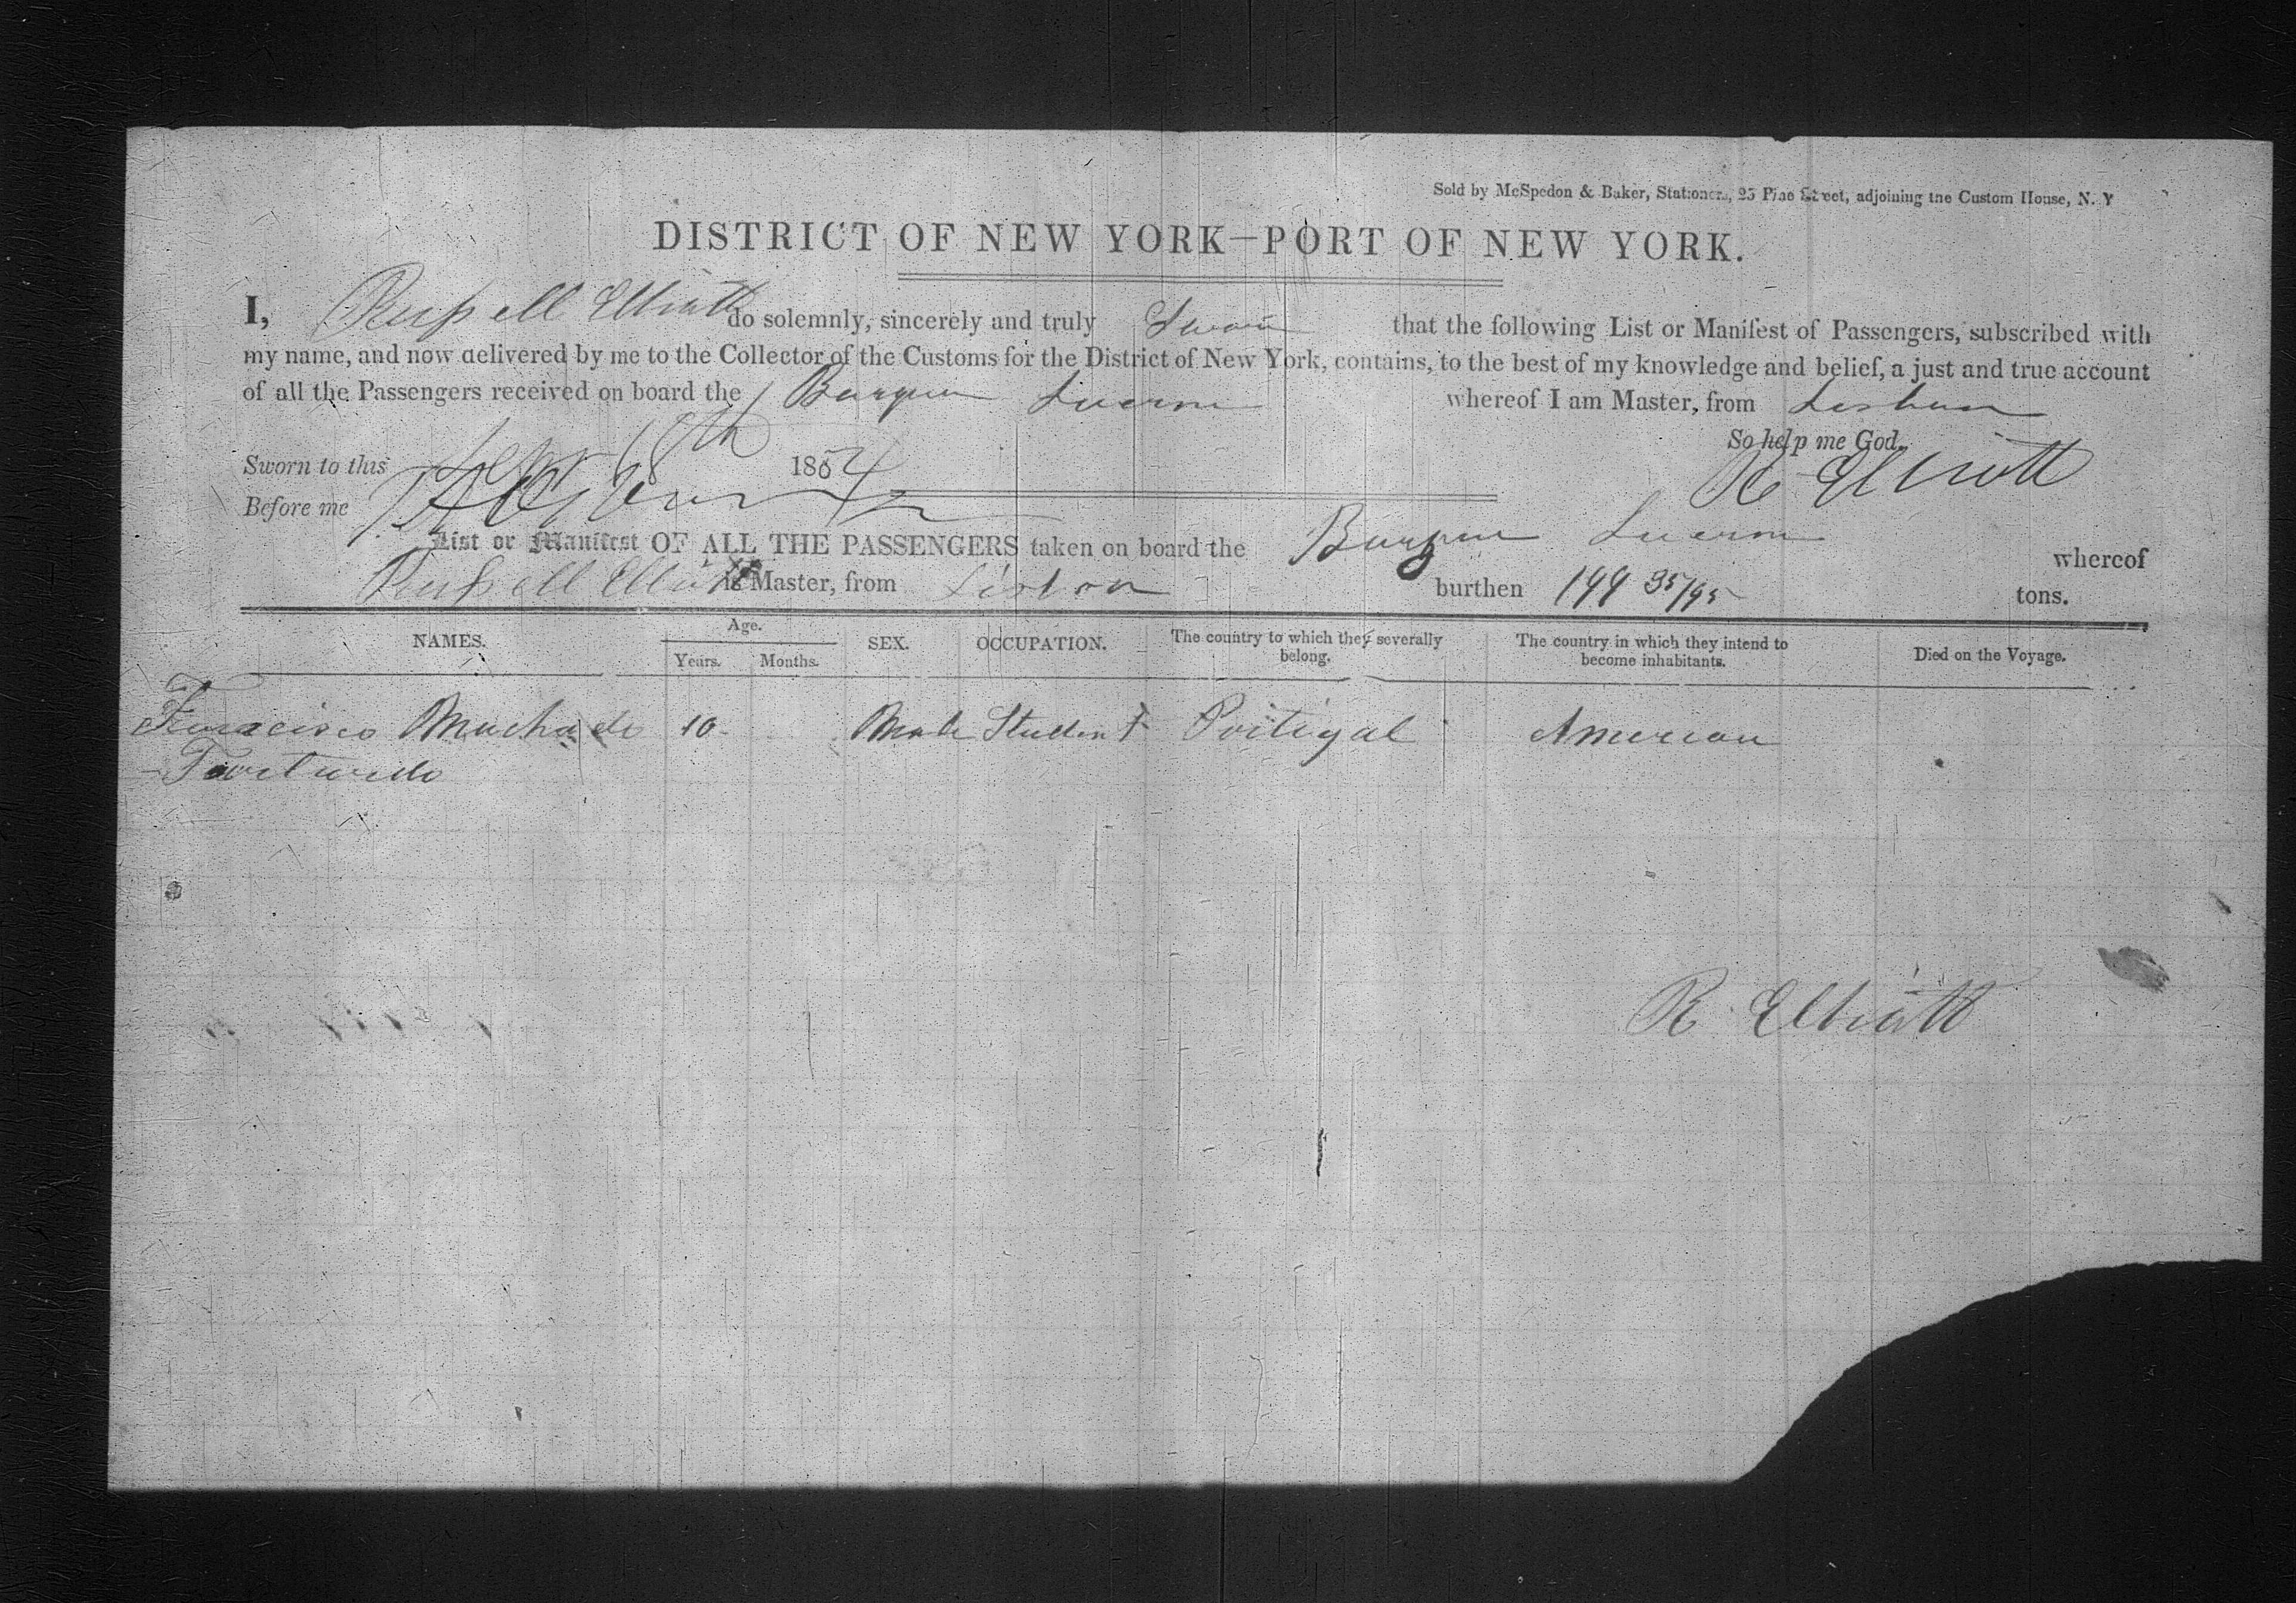 Sold by McSpedon & Baker, Stationers, 25 Pine Street, adjoining the Custom House, N. Y
DISTRICT OF NEW YORK—PORT OF NEW YORK.
I, Russell Elliott do solemnly, sincerely and truly Swear that the following List or Manifest of Passengers, subscribed with
my name, and now delivered by me to the Collector of the Customs for the District of New York, contains, to the best of my knowledge and belief, a just and true account
of all the Passengers received on board the Barque Lucerne whereof I am Master, from Lisbon
So help me God.
Sworn to this Sept 18th 1854 R Elliott
Before me
List or Manifest OF ALL THE PASSENGERS taken on board the Barque Lucerne whereof
Russell Elliott is Master, from Lisbon burthen 199 35/95 tons.
NAMES. Age. Years. Months. SEX. OCCUPATION. The country to which they severally belong. The country in which they intend to become inhabitants. Died on the Voyage.
Francisco Machado 10 Male Student Portigal American
R Elliott